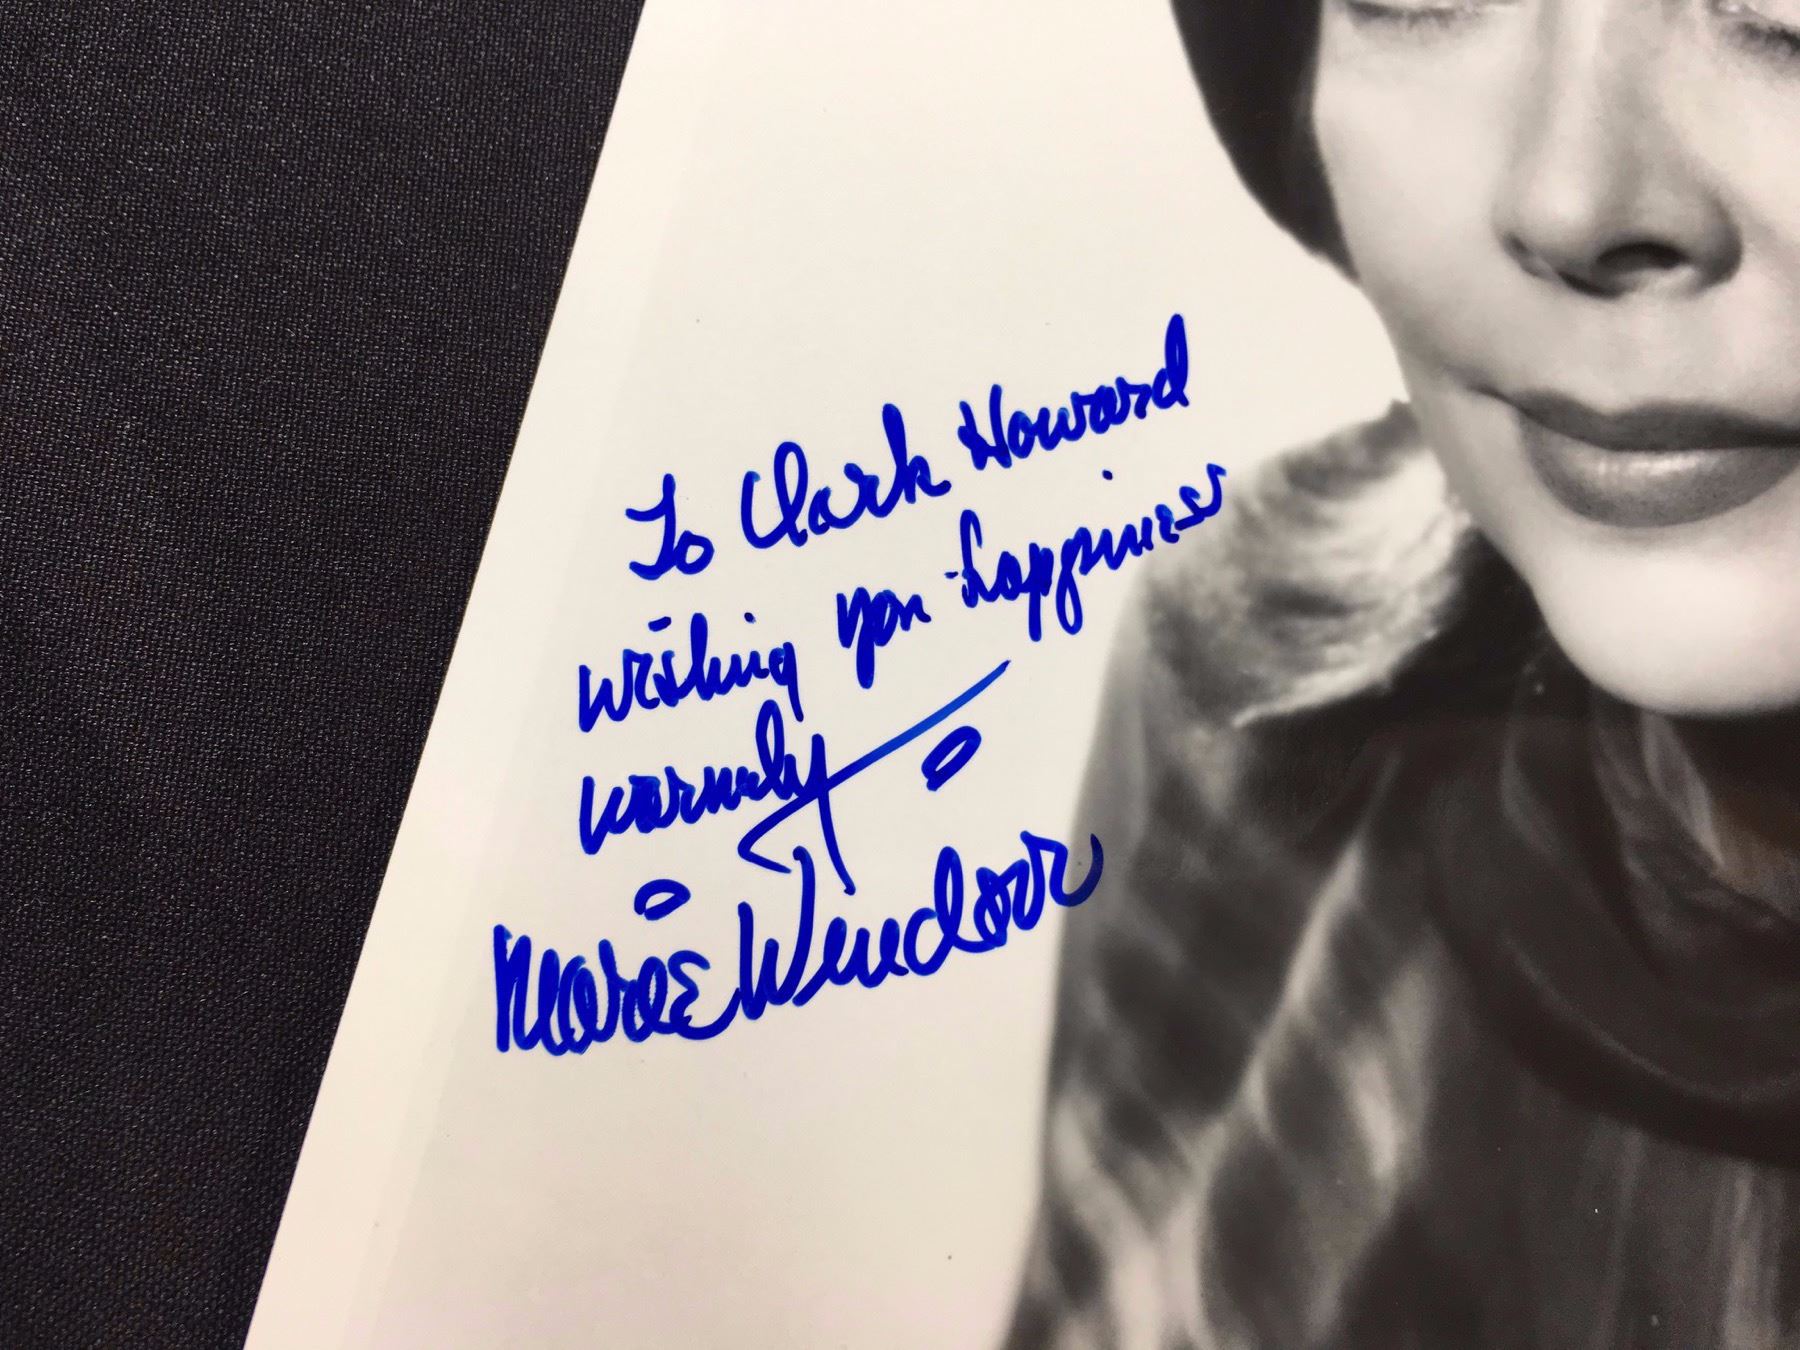 To Clark Howard
wishing you happiness
warmly
Marie Windsor